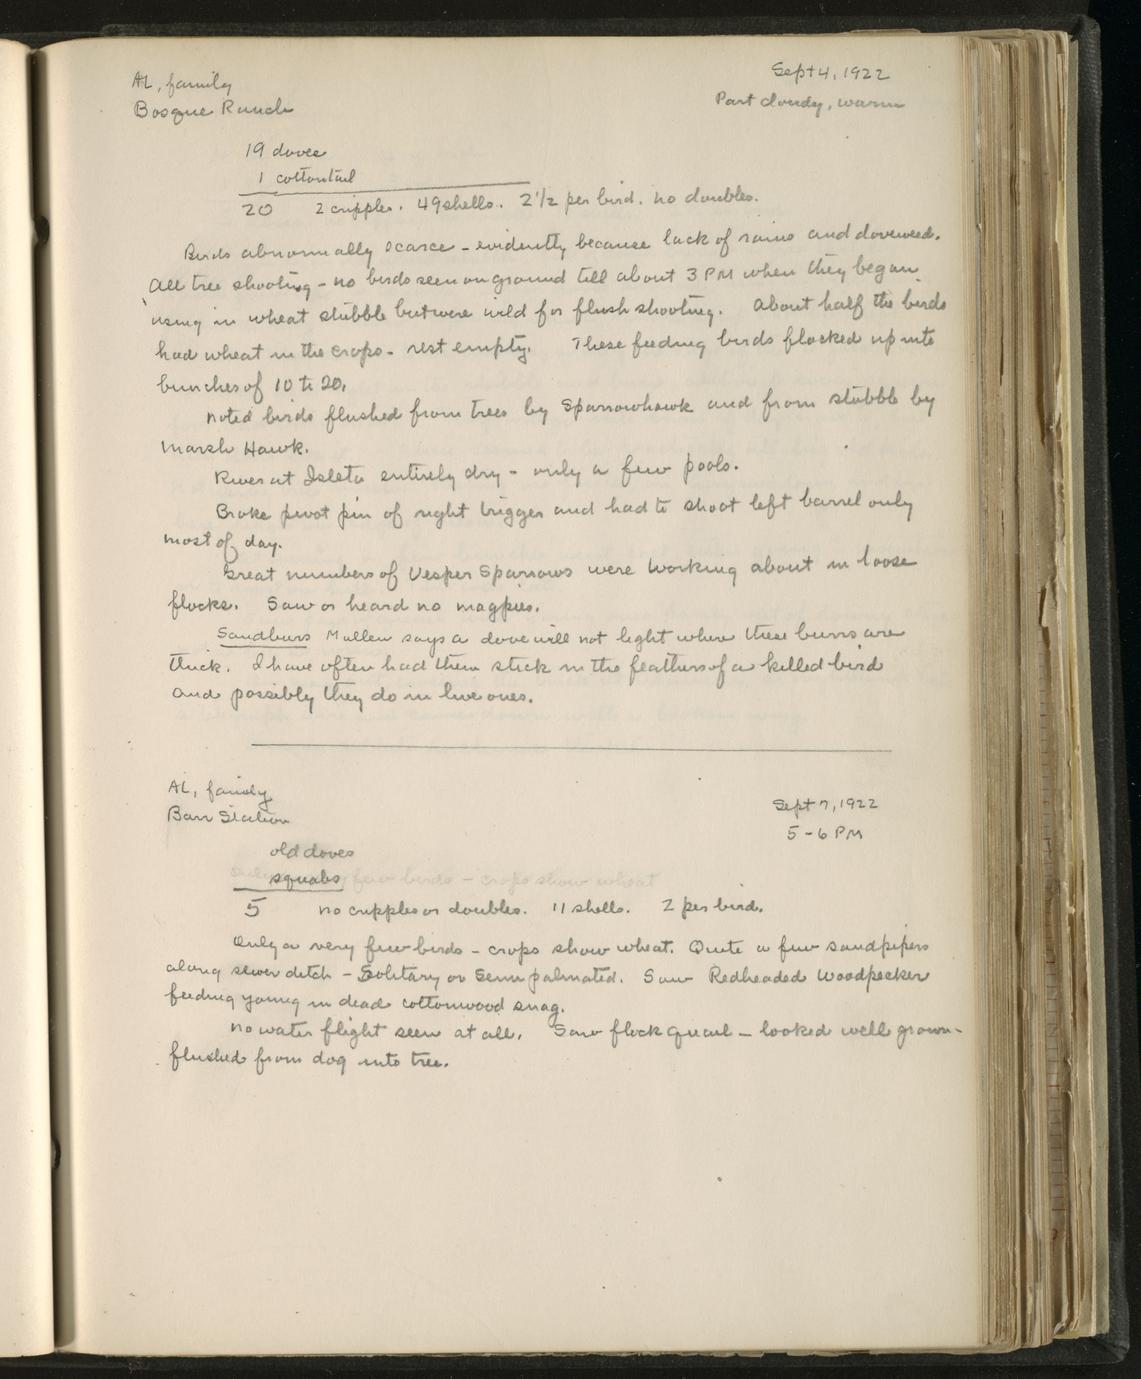 AL, family
Sept 4, 1922
Bosque Ranch
Part cloudy, warm
19 doves
1 cottontail
20 2 cripples. 49 shells. 2 1/2 per bird. no doubles.
Birds abnormally scarce - evidently because lack of rains and doveweed.
All tree shooting - no birds seen on ground till about 3 PM when they began
using in wheat stubble but were wild for flush shooting. About half the birds
had wheat in the crops - rest empty. These feeding birds flocked up into
bunches of 10 to 20.
Noted birds flushed from trees by Sparrowhawk and from stubble by
Marsh Hawk.
River at Isleta entirely dry - only a few pools.
Broke pivot pin of right trigger and had to shoot left barrel only
most of day.
Great numbers of Vesper Sparrows were working about in loose
flocks. Saw or heard no magpies.
Sandburs Mullen says a dove will not light where these burrs are
thick. I have often had them stick in the feathers of a killed bird
and possibly they do in live ones.
AL, family
Sept 7, 1922
Barr Station
5-6 PM
old doves
squabs
few birds - crops show wheat
5 no cripples or doubles. 11 shells. 2 per bird.
Only a very few birds - crops show wheat. Quite a few sandpipers
along sewer ditch - Solitary or Semipalmated. Saw Redheaded Woodpecker
feeding young in dead cottonwood snag.
No water flight seen at all. Saw flock quail - looked well grown -
flushed from dog into tree.